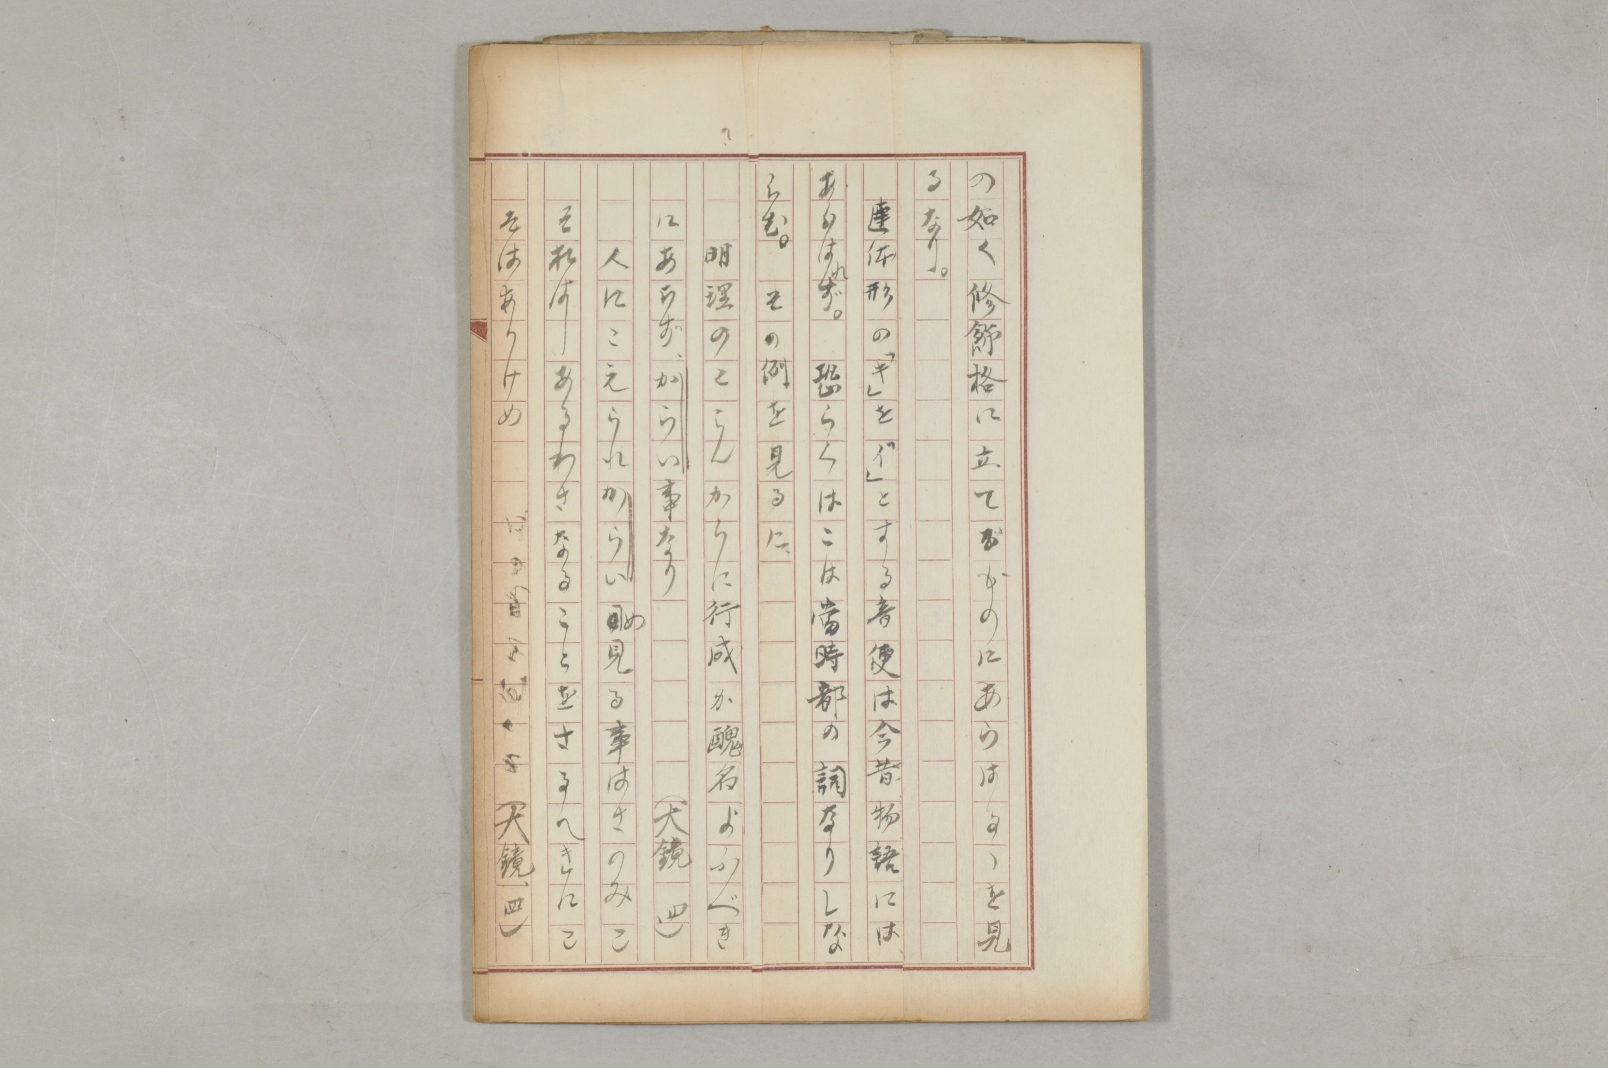 の如く修飾格に立てるものにあらはるゝを見
るなり。
連体形の「キ」を「イ」とする音便は今昔物語には
あらはれず。恐らくはこは當時都の詞なりしな
らむ。その例を見るに、
明理のこゝろえからに行成か醜名よふべき
にあらず、からい事なり(大鏡 四)
人にこえられからいめ見る事はさのみこ
そおはしあるわさなることをさるへきにこ
そはありけめ(大鏡、四)